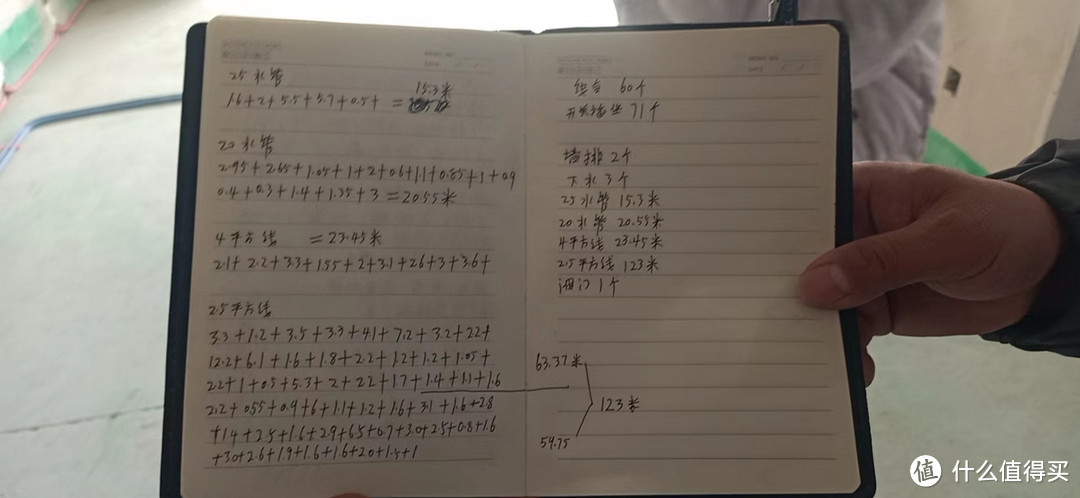 25 水管
15.3米
1.6+2+5.5+5.7+0.5+ =
20水管
2.95+2.65+1.05+1+2+0.6+1.1+0.85+1+0.9
0.4+0.3+1.4+1.35+3=20.55米
4平方线 =23.45米
2.1+2.2+3.3+1.55+2+3.1+2.6+3+3.6+
2.5平方线
3.3+1.2+3.5+3.3+4.1+7.2+3.2+2.2+
12.2+6.1+1.6+1.8+2.2+1.2+1.2+1.05+
2.2+1+0.5+5.3+2+2.2+1.7+1.4+1.1+1.6
2.2+0.55+0.9+6+1.1+1.2+1.6+3.1+1.6+2.8
+1.4+2.5+1.6+2.9+6.5+0.7+3.0+2.5+0.8+1.6
+3.0+2.6+1.9+1.6+1.6+2.0+1.5+1
60个
开关插坐 71个
墙排 2个
下水 3个
25水管 15.3米
20水管 20.55米
4平方线 23.45米
2.5平方线 123米
1个
63.37米
123米
59.75
值 什么值得买